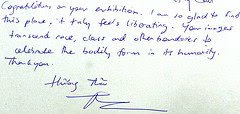 Congratulations on your exhibition. I am so glad to find
this place, it truly feels liberating. Your images
transcend race, class and other boundaries to
celebrate the bodily form in its humanity.
Thank you.